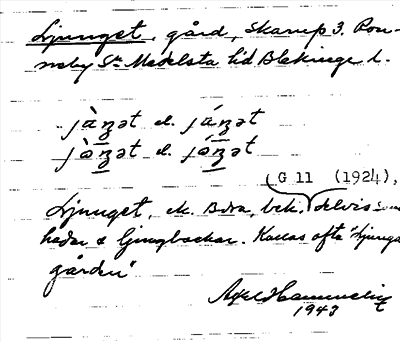 Ljunget, gård, Skarup 3. Ron-
neby Sn Medelsta hd Blekinge l.
jàŋət el. jáŋət
jòŋət el. jóŋət
G 11 (1924),
Ljunget, ek. Bdra, bek. delvis som
hedar & ljungbackar. Kallas ofta "Ljunga
gården"
Axel Hammelin
1943